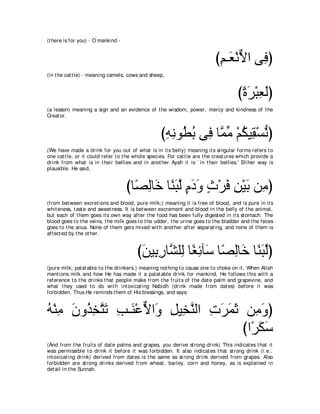 (there is for you) - O mankind -
(فِى الاٌّنْعَـمِ)
(in the cattle) - meaning camels, cows and sheep,
(لَعِبْرَةً)
(a lesson) meaning a sign and an evidence of the wisdom, power, mercy and kindness of the
Creator.
(نُّسْقِيكُمْ مِّمَّا فِى بُطُونِهِ)
(We have made a drink for you out of what is in its belly) meaning its singular forms refers to
one cattle, or it could refer to the whole species. For cattle are the creatures which provide a
drink from what is in their bellies and in another Ayah it is `in their bellies.' Either way is
plausible. He said,
(مِن بَيْنِ فَرْثٍ وَدَمٍ لَّبَنًا خَالِصًا)
(from between excretions and blood, pure milk;) meaning it is free of blood, and is pure in its
whiteness, taste and sweetness. It is between excrement and blood in the belly of the animal,
but each of them goes its own way after the food has been fully digested in its stomach. The
blood goes to the veins, the milk goes to the udder, the urine goes to the bladder and the feces
goes to the anus. None of them gets mixed with another after separating, and none of them is
affected by the other.
(لَّبَنًا خَالِصًا سَآئِغًا لِلشَّارِبِينَ)
(pure milk; palatable to the drinkers.) meaning nothing to cause one to choke on it. When Allah
mentions milk and how He has made it a palatable drink for mankind, He follows this with a
reference to the drinks that people make from the fruits of the date palm and grapevine, and
what they used to do with intoxicating Nabidh (drink made from dates) before it was
forbidden. Thus He reminds them of His blessings, and says:
(وَمِن ثَمَرَتِ النَّخِيلِ وَالاٌّعْنَـبِ تَتَّخِذُونَ مِنْهُ
سَكَرًا)
(And from the fruits of date palms and grapes, you derive strong drink) This indicates that it
was permissible to drink it before it was forbidden. It also indicates that strong drink (i.e.,
intoxicating drink) derived from dates is the same as strong drink derived from grapes. Also
forbidden are strong drinks derived from wheat, barley, corn and honey, as is explained in
detail in the Sunnah.